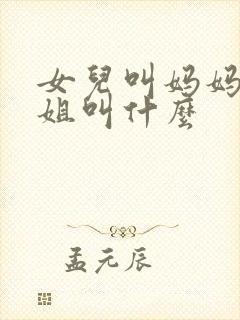 女兒叫妈妈
姐叫什麼
孟元辰